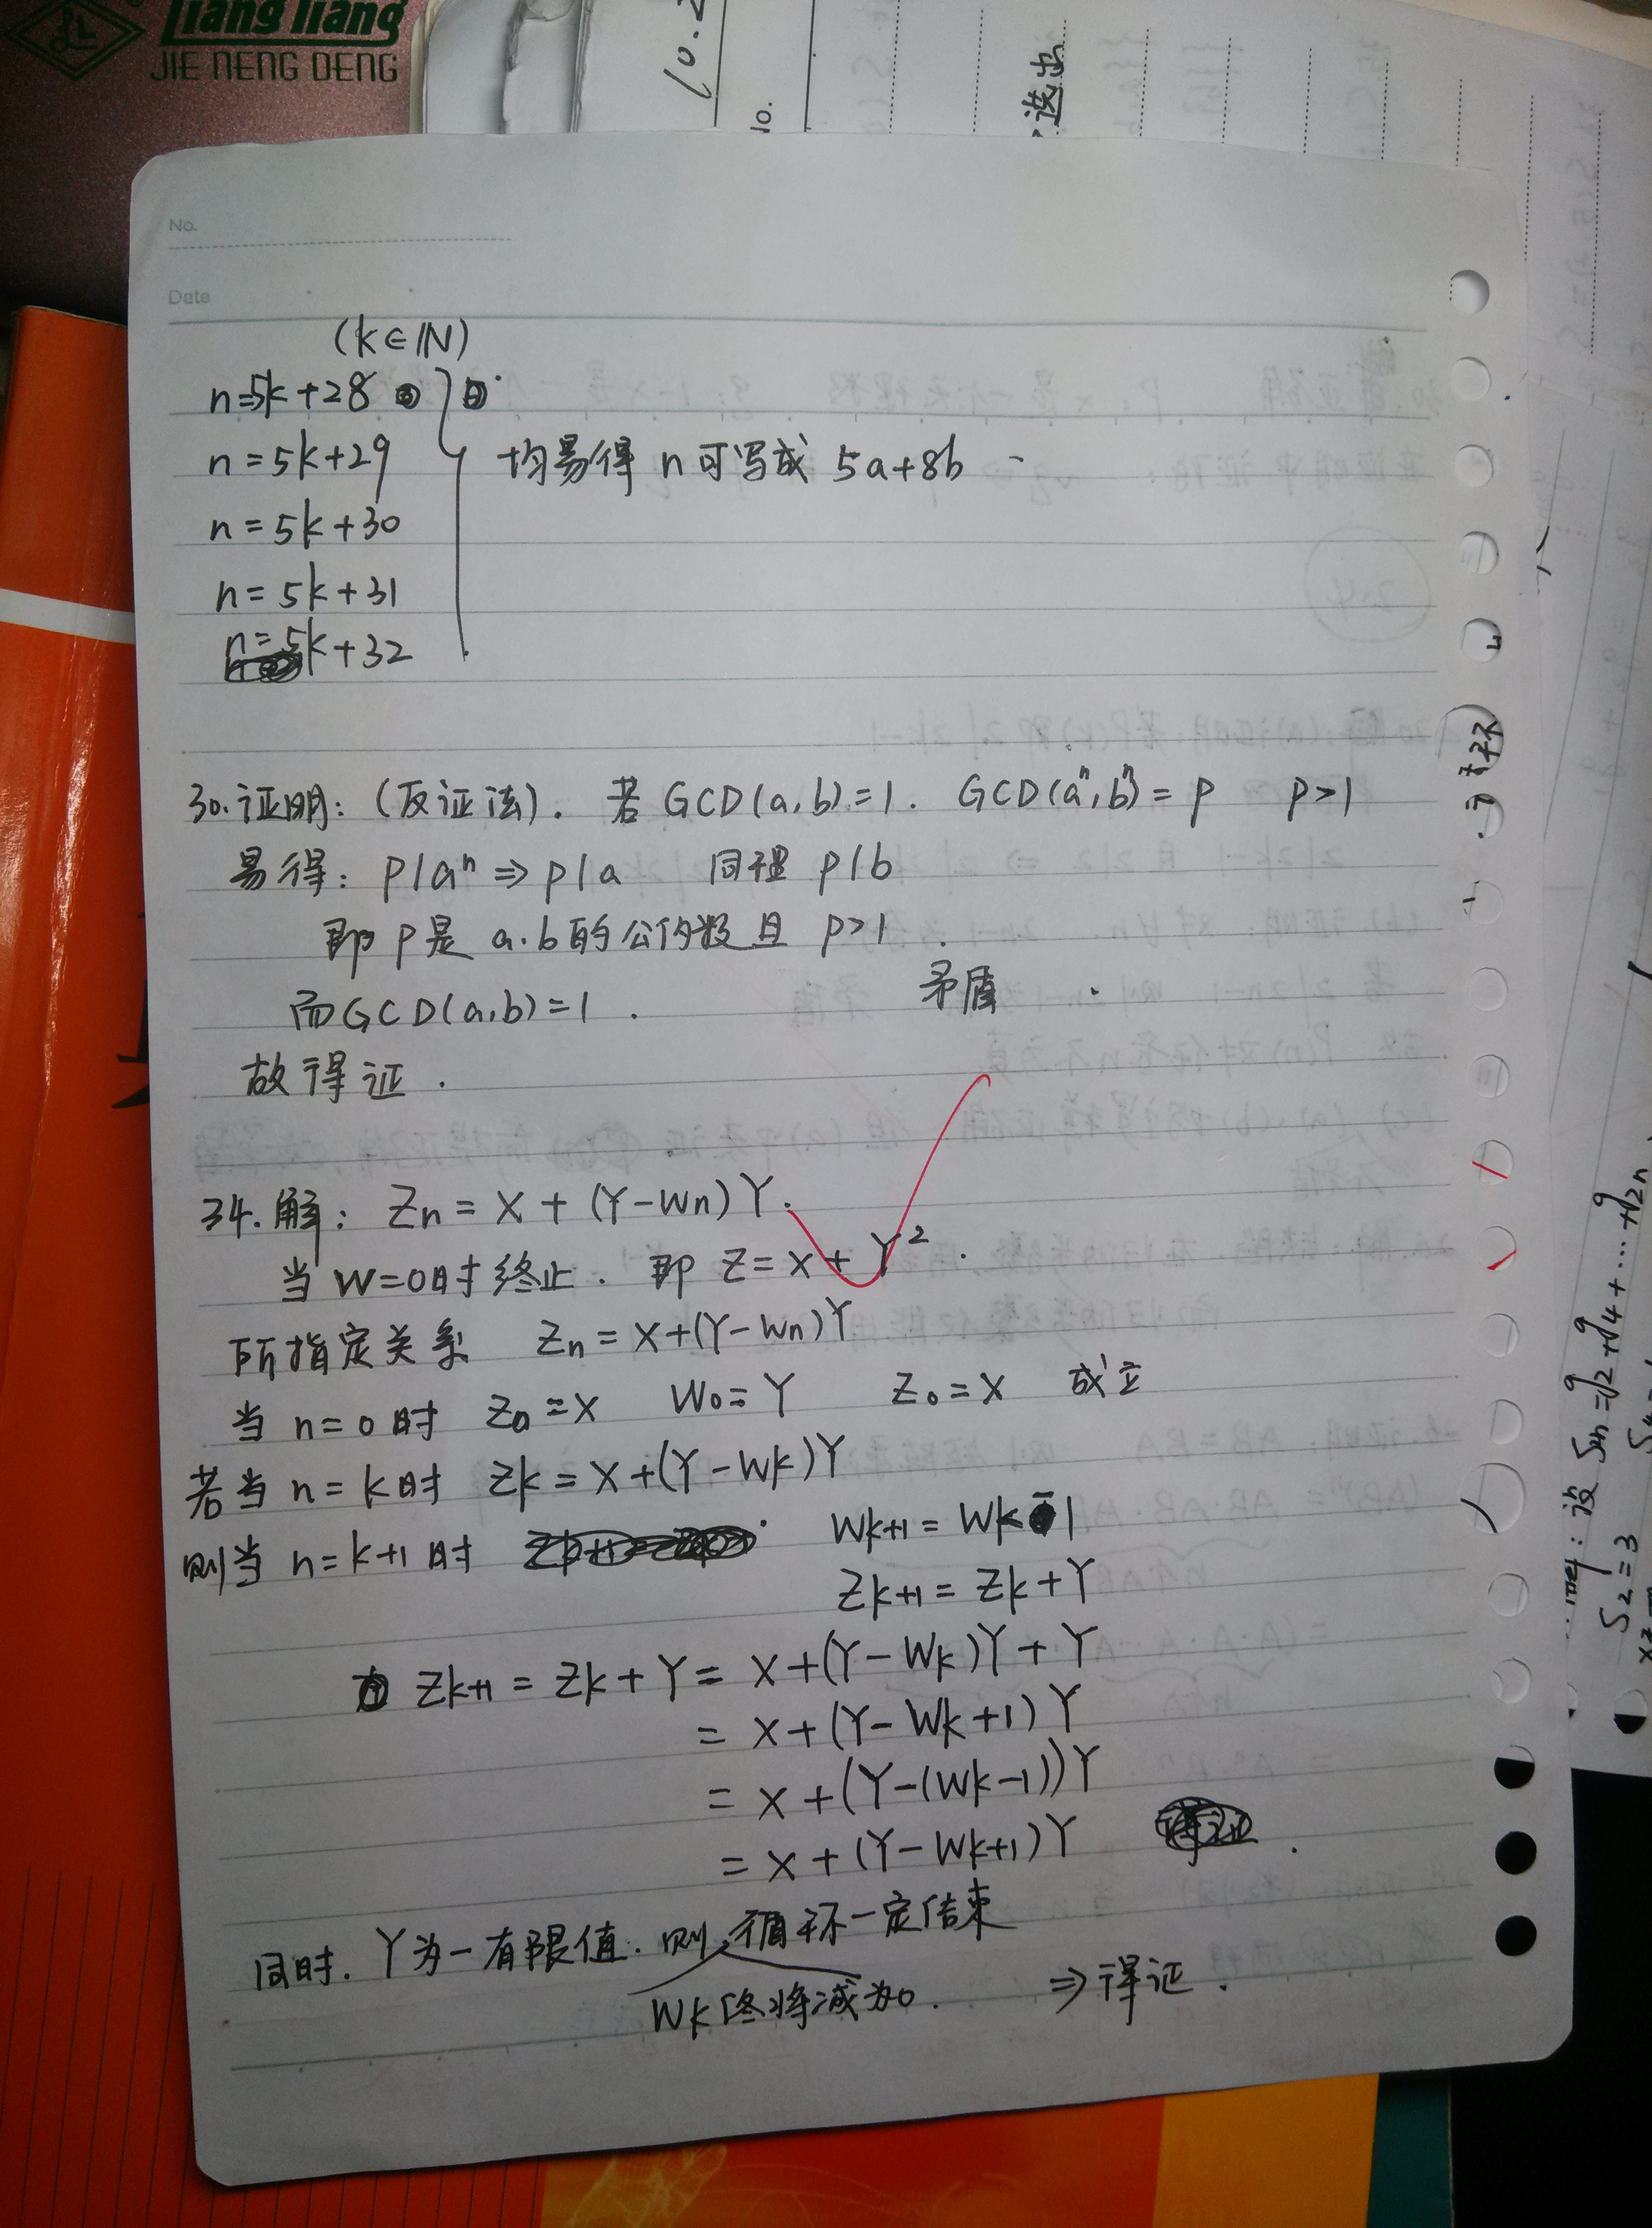 Liang liang
JIE NENG DENG
10.2
No.
选出
No.
Date
(k∈ℕ)
n=5k+28
n=5k+29
均易得 n可写成 5a+8b
n=5k+30
n=5k+31
n=5k+32
30.证明:(反证法). 若GCD(a,b)=1. GCD(aⁿ,bⁿ)=p p>1
易得: p|aⁿ⇒p|a 同理 p|b
即p是 a.b的公约数且 p>1.
而GCD(a,b)=1. 矛盾.
故得证.
34.解: Zn=X+(Y-Wn)Y.
当W=0时终止. 即 Z=X+Y².
所指定关系 Zn=X+(Y-Wn)Y
当n=0时 Z0=X W0=Y Z0=X 成立
若当n=k时 Zk=X+(Y-Wk)Y
则当n=k+1时 Wk+1=Wk-1
Zk+1=Zk+Y
Zk+1=Zk+Y=X+(Y-Wk)Y+Y
=X+(Y-Wk+1)Y
=X+(Y-(Wk-1))Y
=X+(Y-Wk+1)Y
同时. Y为一有限值. 则循环一定结束
Wk终将减为0. ⇒得证.
S2=3